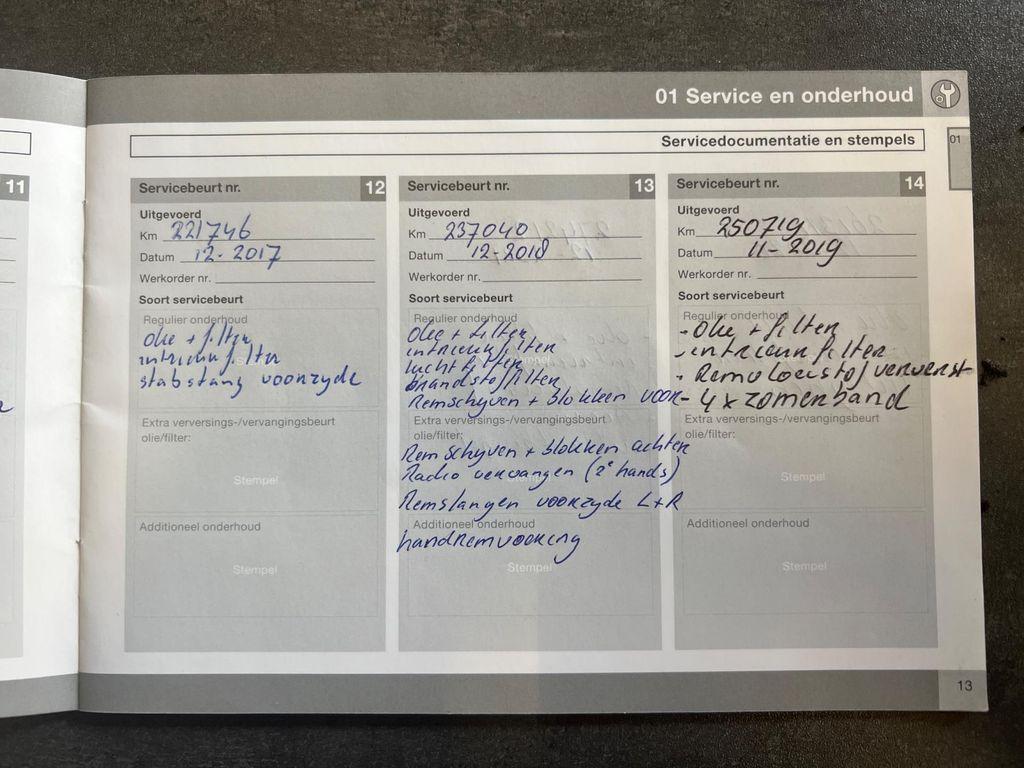 01 Service en onderhoud
01
Servicedocumentatie en stempels
11
Servicebeurt nr. 12
Uitgevoerd
Km 221746
Datum 12-2017
Werkorder nr.
Soort servicebeurt
Regulier onderhoud
olie + filter
intrieur filter
stabstang voorzyde
Extra verversings-/vervangingsbeurt
olie/filter:
Stempel
Additioneel onderhoud
Stempel
Servicebeurt nr. 13
Uitgevoerd
Km 237040
Datum 12-2018
Werkorder nr.
Soort servicebeurt
Regulier onderhoud
olie + filter
intrieur filter
Stempel
luchtfilter
brandstoffilter
Remschyven + blokken voor
Extra verversings-/vervangingsbeurt
olie/filter:
Remschyven + blokken achter
Radio vervangen (2e hands)
Stempel
Remslangen voorzyde L+R
Additioneel onderhoud
handremvoering
Stempel
Servicebeurt nr. 14
Uitgevoerd
Km 250719
Datum 11-2019
Werkorder nr.
Soort servicebeurt
Regulier onderhoud
- Olie + filter
- intrieur filter
- Remvloeistof ververst
- 4x zomerband
Extra verversings-/vervangingsbeurt
olie/filter:
Stempel
Additioneel onderhoud
Stempel
13